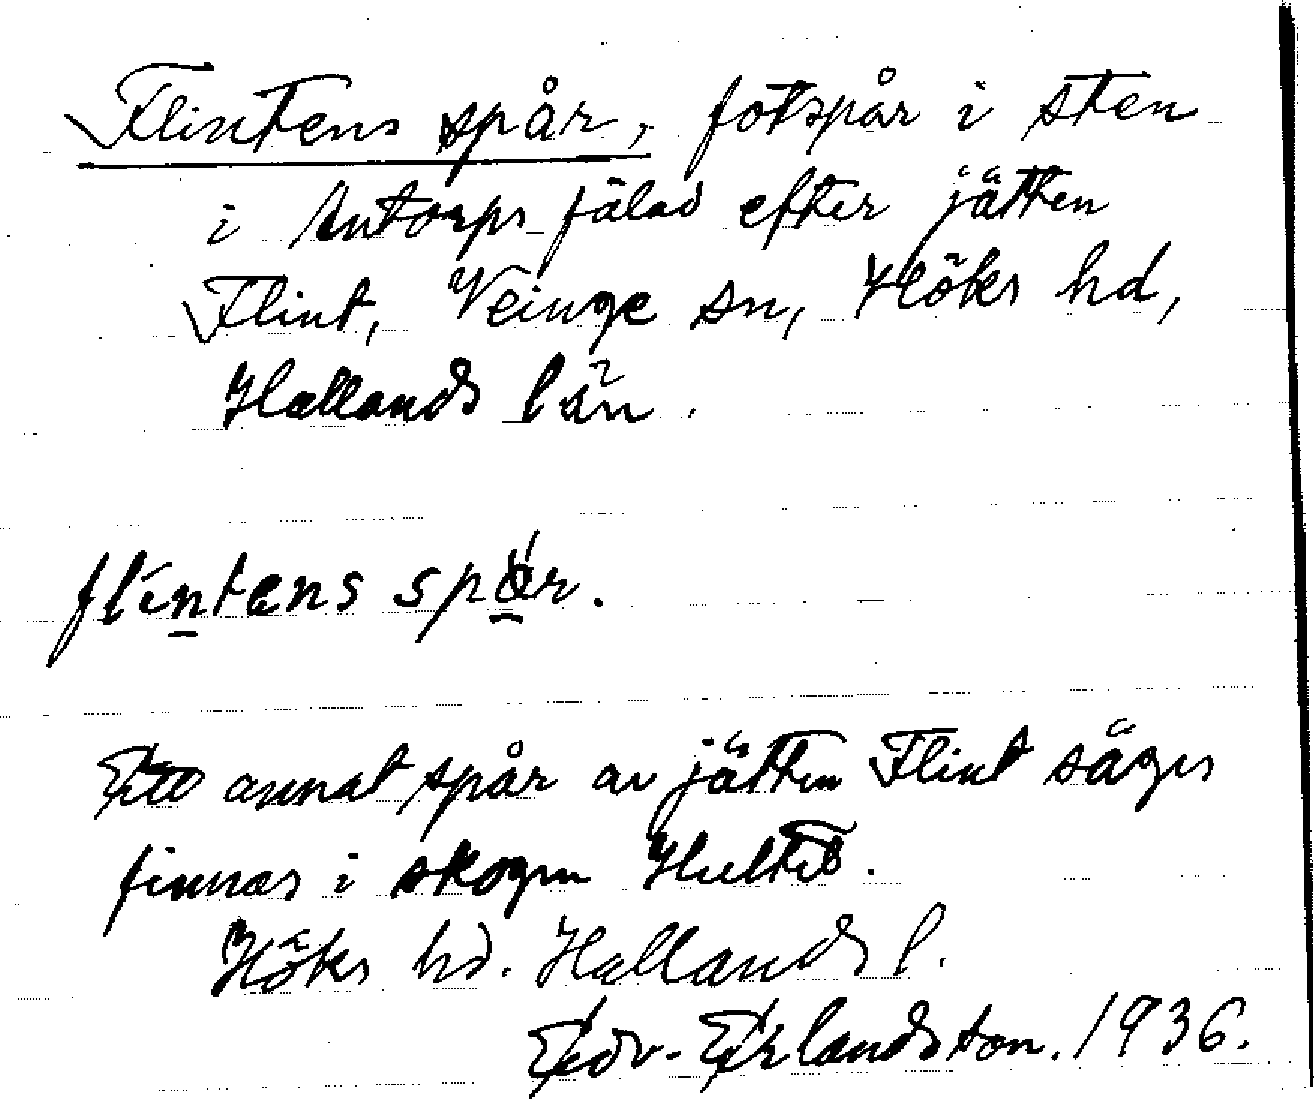 Flintens spår, fotspår i sten
i Antorps fälad efter jätten
Flint, Veinge sn, Höks hd,
Hallands län.
flintens spår.
Ett annat spår av jätten Flint säges
finnas i skogen Hultet.
Höks hd. Hallands l.
Edv. Eklandson. 1936.